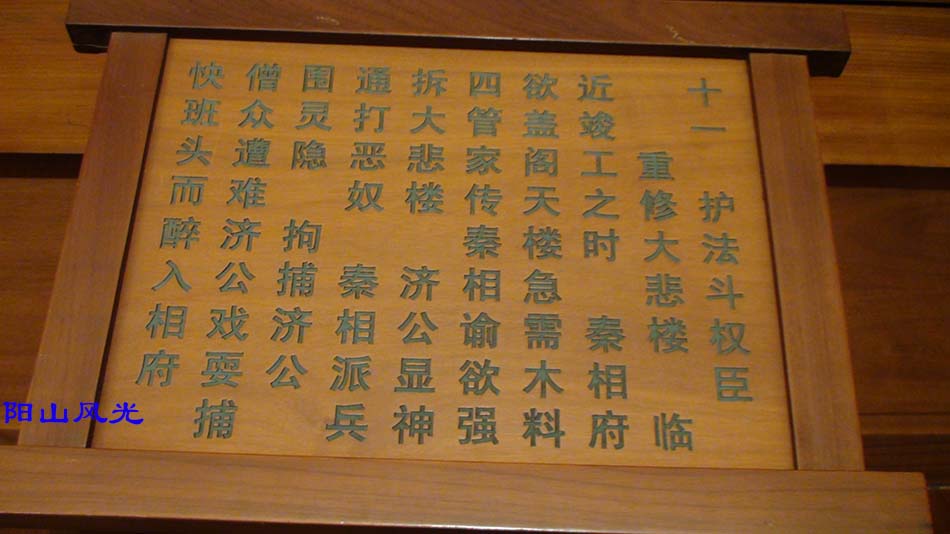 十一 护法斗权臣
重修大悲楼 临
近竣工之时 秦相府
欲盖阁天楼急需木料
四管家传秦相谕欲强
拆大悲楼 济公显神
通打恶奴 秦相派兵
围灵隐 拘捕济公
僧众遭难济公戏耍捕
快班头而醉入相府
阳山风光